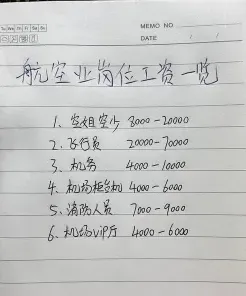 Tu We Th Fr Sa Su
MEMO NO.
DATE / /
航空业岗位工资一览
1、空姐空少 8000-20000
2、飞行员 20000-70000
3、机务 4000-10000
4、机场柜台机 4000-6000
5、消防人员 7000-9000
6、机场vip厅 4000-6000